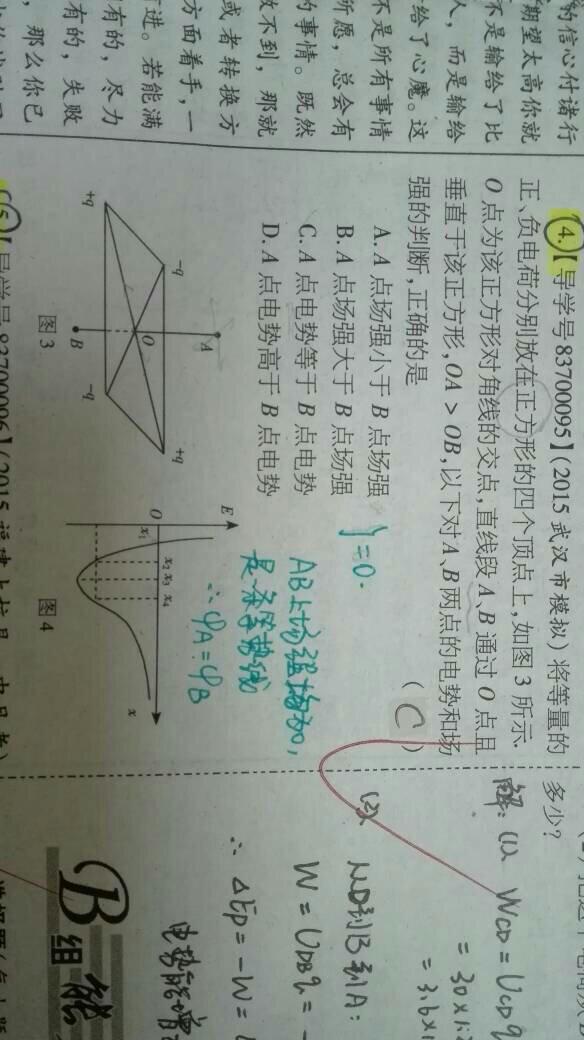 的信心付诸行
期望太高你就
不是输给了比
人，而是输给
给了心魔。这
不是所有事情
所愿，总会有
的事情。既然
做不到，那就
或者转换方
方面着手，一
进。若能满
有的，尽力
有的，失败
，那么你已
4.【导学号83700095】(2015武汉市模拟)将等量的
正、负电荷分别放在正方形的四个顶点上，如图3所示.
O点为该正方形对角线的交点，直线段A、B通过O点且
垂直于该正方形，OA＞OB，以下对A、B两点的电势和场
强的判断，正确的是 （C）
A.A点场强小于B点场强
B.A点场强大于B点场强
C.A点电势等于B点电势
D.A点电势高于B点电势
}=0.
AB上场强均为0,
是条等势线
∴φA=φB
A
-q
+q
O
+q
-q
B
图3
E
O
x1
x2
x3
x4
x
图4
5.【导学号83700096】(2015
多少？
解:(1) WCD=UCDq
=30×1.2
=3.6×1
(2)
从D到B到A:
W=UDBq=-
∴ΔEp=-W=
电势能增
B
组
能